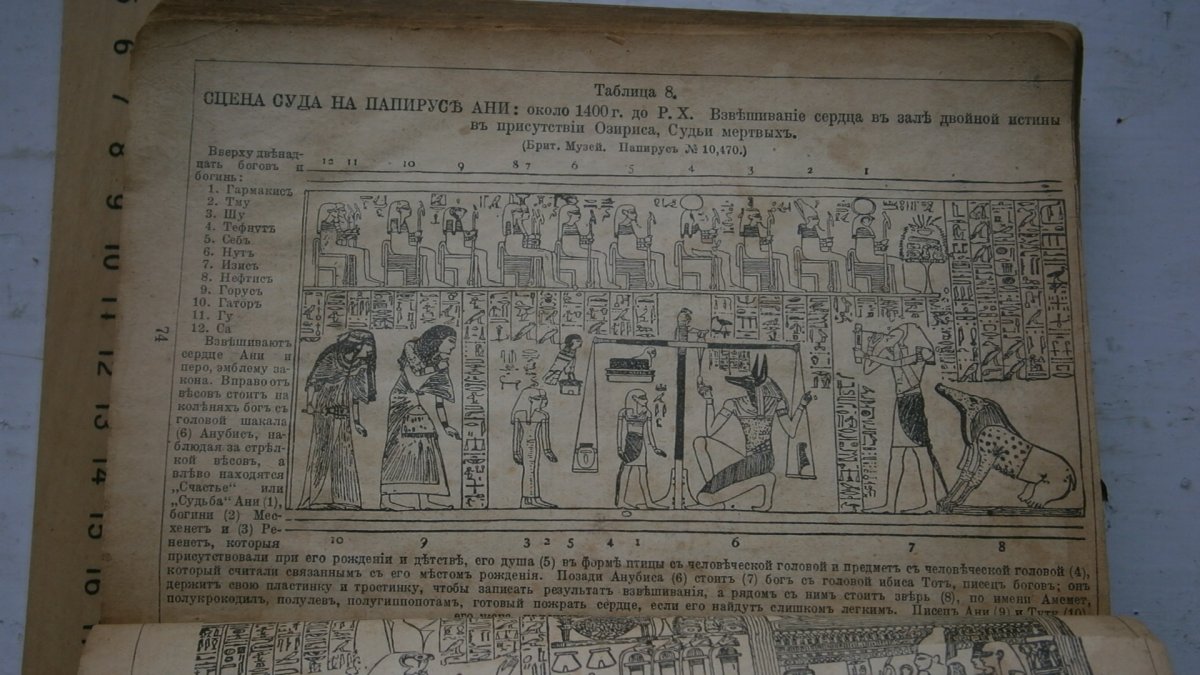 Таблица 8.
СЦЕНА СУДА НА ПАПИРУСѢ АНИ: около 1400 г. до Р. Х. Взвѣшиваніе сердца въ залѣ двойной истины
въ присутствіи Озириса, Судьи мертвыхъ.
(Брит. Музей. Папирусъ № 10,470.)
Вверху двѣнад-
цать боговъ и
богинь:
12 11 10 9 8 7 6 5 4 3 2 1
1. Гармакисъ
2. Тму
3. Шу
4. Тефнутъ
5. Себъ
6. Нутъ
7. Изисъ
8. Нефтисъ
9. Горусъ
10. Гаторъ
11. Гу
12. Са
Взвѣшиваютъ
сердце Ани и
перо, эмблему за-
кона. Вправо отъ
вѣсовъ стоитъ на
колѣняхъ богъ съ
головой шакала
(6) Анубисъ, на-
блюдая за стрѣл-
кой вѣсовъ, а
влѣво находятся
„Счастье“ или
„Судьба“ Ани (1),
богини (2) Мес-
хенетъ и (3) Ре-
ненетъ, которыя
10 9 3 2 5 4 1 6 7 8
присутствовали при его рожденіи и дѣтствѣ, его душа (5) въ формѣ птицы съ человѣческой головой и предметъ съ человѣческой головой (4),
который считали связаннымъ съ его мѣстомъ рожденія. Позади Анубиса (6) стоитъ (7) богъ съ головой ибиса Тотъ, писецъ боговъ; онъ
держитъ свою пластинку и тростинку, чтобы записать результатъ взвѣшиванія, а рядомъ съ нимъ стоитъ звѣрь (8), по имени Амемет,
полукрокодилъ, полулевъ, полугиппопотамъ, готовый пожрать сердце, если его найдутъ слишкомъ легкимъ. Писецъ Ани (9) и Туту (10)
74
6
7
8
9
10
11
12
13
14
15
16